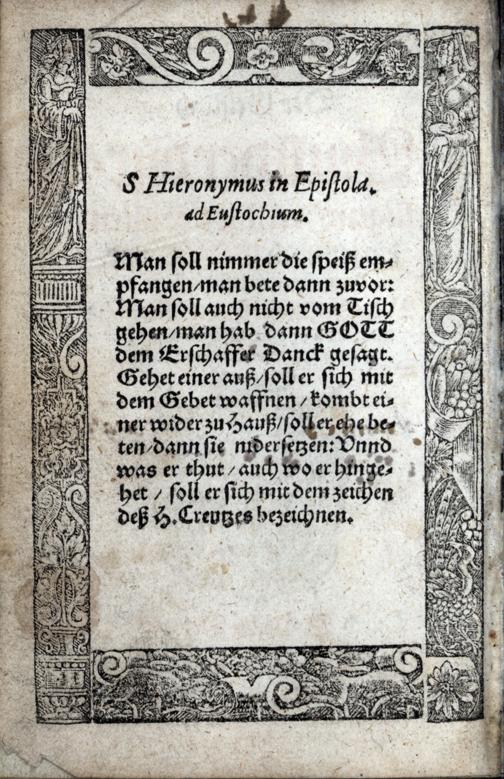 S Hieronymus in Epistola.
ad Eustochium.
Man soll nimmer die speiß em-
pfangen/man bete dann zuvor:
Man soll auch nicht vom Tisch
gehen/man hab dann GOTT
dem Erschaffer Danck gesagt.
Gehet einer auß/soll er sich mit
dem Gebet waffnen/kombt ei-
ner wider zu Hauß/soll er ehe be-
ten/dann sie nidersetzen: Vnnd
was er thut/auch wo er hinge-
het/soll er sich mit dem zeichen
deß H. Creutzes bezeichnen.